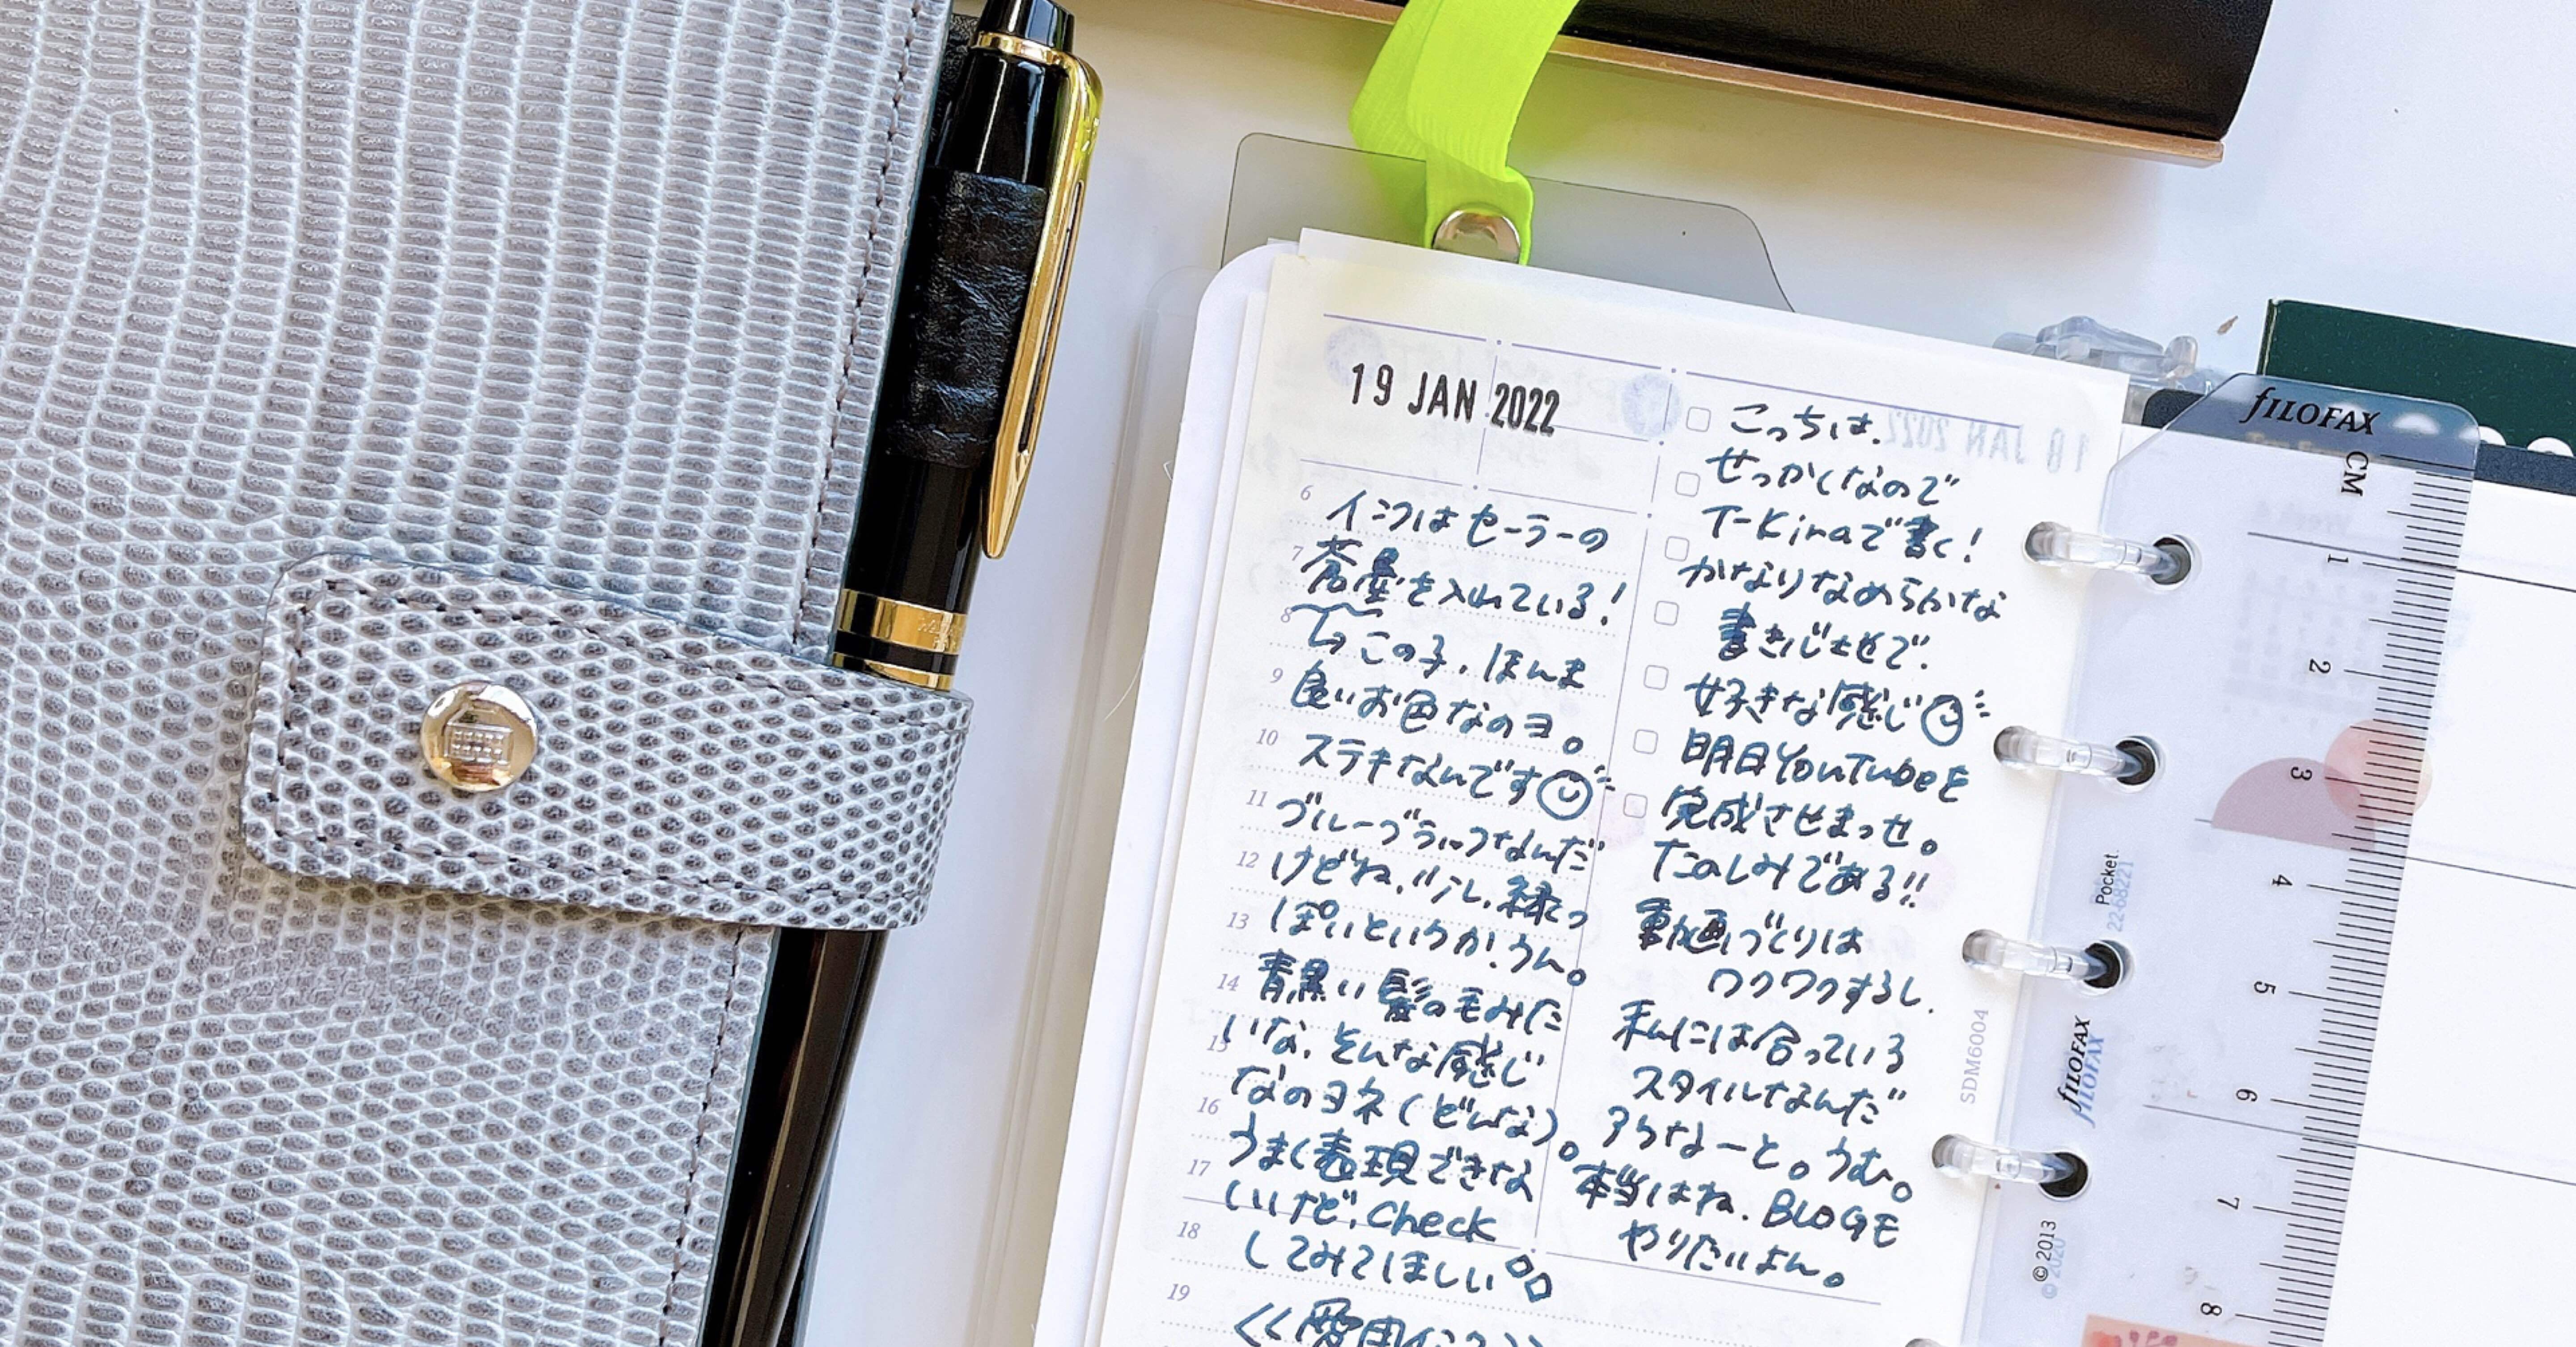 19 JAN 2022
6
インクはセーラーの
7
蒼墨を入れている!
8
この子、ほんま
9
良いお色なのヨ。
10
ステキなんです
11
ブルーブラックなんだ
12
けどね、少し、緑っ
13
ぽいというか!うん。
14
青黒い髪の毛みた
15
いな、そんな感じ
なのヨネ(どんな)。
16
うまく表現できな
17
いけど、check
18
してみてほしい
19
<<愛用インク>>
こっちは、
せっかくなので
T-Kinaで書く!
かなりなめらかな
書きじ
好きな感じ
明日YouTubeを
完成させまっせ。
たのしみである!!
動画づくりは
ワクワクするし、
私には合っている
スタイルなんだ
うなーと。うむ。
本当はね、BLOGを
やりたいよん。
18 JAN 2022
SDM6004
fILOFAX
CM
1
2
3
4
5
6
7
8
Pocket
22-68221
fILOFAX
fILOFAX
© 2013
© 2020